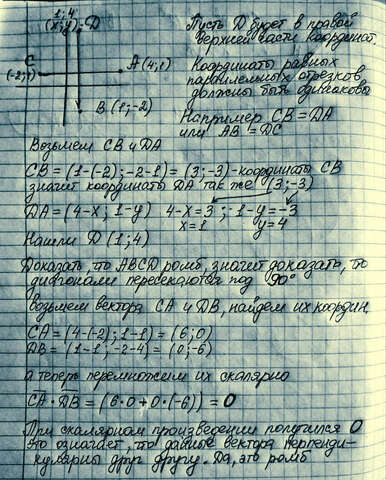 1; 4
(x; y) D
Пусть D будет в правой
верхней части координат.
C
(-2; 1)
A (4; 1)
B (1; -2)
Координаты равных
параллельных отрезков
должны быть одинаковы
Например CB = DA
или AB = DC
Возьмем CB и DA
CB = (1-(-2); -2-1) = (3; -3) - координаты CB
значит координаты DA так же (3; -3)
DA = (4-x; 1-y) 4-x=3 ; 1-y=-3
x=1 y=4
Нашли D (1; 4)
Доказать, что ABCD ромб, значит доказать, что
диагонали пересекаются под 90°
Возьмем вектора CA и DB, найдем их координ.
CA = (4-(-2); 1-1) = (6; 0)
DB = (1-1; -2-4) = (0; -6)
а теперь перемножим их скалярно
CA · DB = (6·0+0·(-6)) = 0
При скалярном произведении получился 0
это означает, что данные вектора перпенди-
кулярны друг другу. Да, это ромб